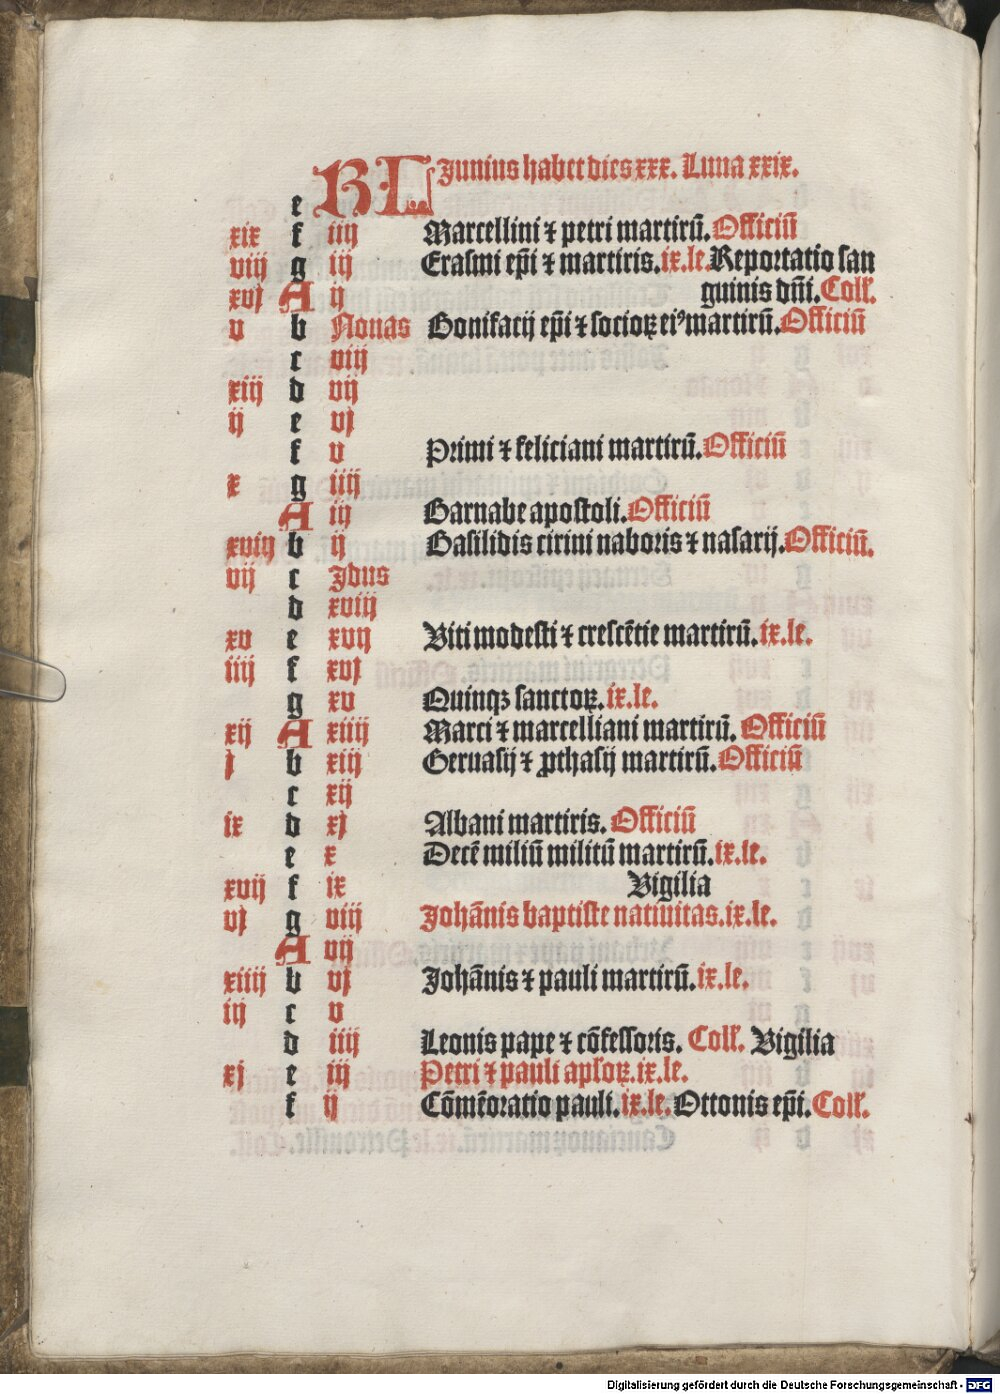 KL Junius habet dies xxx. Luna xxix.
e
xix f iiij Marcellini ⁊ petri martirū. Officiū
viij g iij Erasmi ep̄i ⁊ martiris. ix. le. Reportatio san
xvj A ij guinis dn̄i. Coll'.
v b Nonas Bonifacij ep̄i ⁊ socioꝝ ei⁹ martirū. Officiū
c viij
xiij d vij
ij e vj
f v Primi ⁊ feliciani martirū. Officiū
x g iiij
A iij Barnabe apostoli. Officiū
xviij b ij Basilidis cirini naboris ⁊ nasarij. Officiū.
vij c Jdus
d xviij
xv e xvij Viti modesti ⁊ crescētie martirū. ix. le.
iiij f xvj
g xv Quinqꝫ sanctoꝝ. ix. le.
xij A xiiij Marci ⁊ marcelliani martirū. Officiū
j b xiij Geruasij ⁊ ꝓthasij martirū. Officiū
c xij
ix d xj Albani martiris. Officiū
e x Decē miliū militū martirū. ix. le.
xvij f ix Vigilia
vj g viij Johānis baptiste natiuitas. ix. le.
A vij
xiiij b vj Johānis ⁊ pauli martirū. ix. le.
iij c v
d iiij Leonis pape ⁊ cōfessoris. Coll'. Vigilia
xj e iij Petri ⁊ pauli apl'oꝝ. ix. le.
f ij Cōmēoratio pauli. ix. le. Ottonis ep̄i. Coll'.
Digitalisierung gefördert durch die Deutsche Forschungsgemeinschaft - DFG